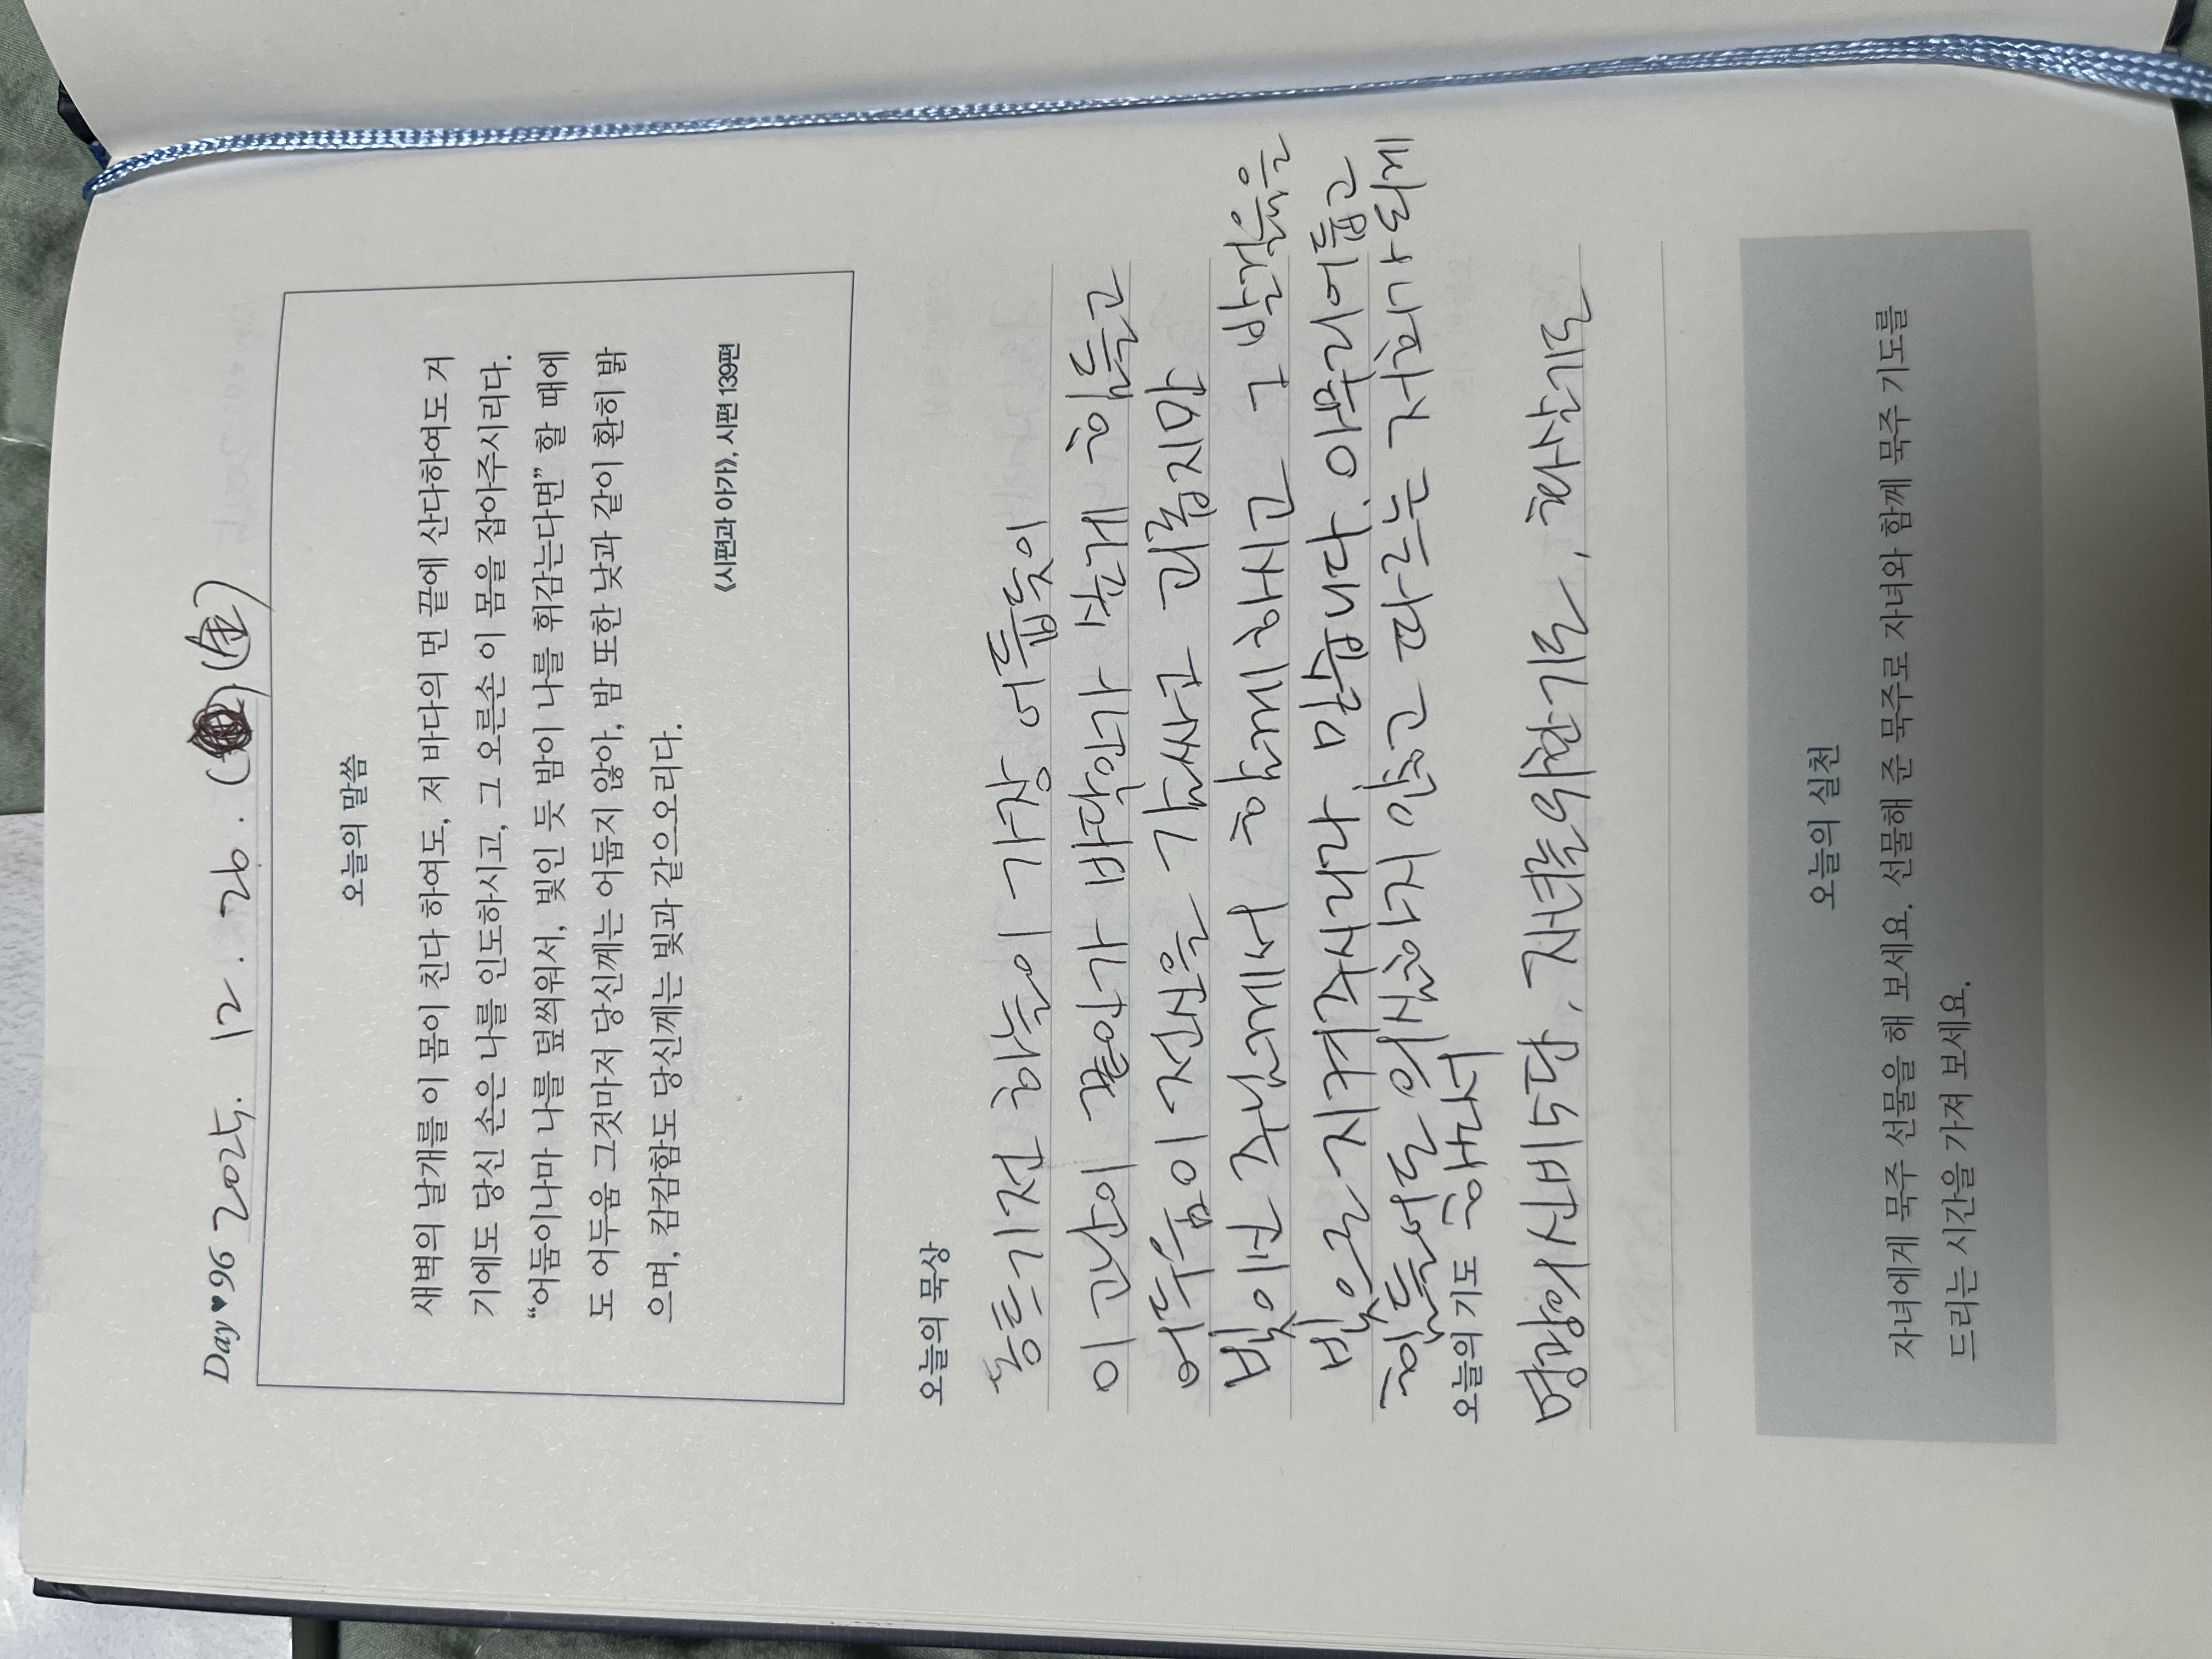 Day♥96 2025. 12. 26. (金)
오늘의 말씀
새벽의 날개를 이 몸이 친다 하여도, 저 바다의 먼 끝에 산다하여도 거
기에도 당신 손은 나를 인도하시고, 그 오른손 이 몸을 잡아주시리다.
“어둠이나마 나를 덮씌워서, 빛인 듯 밤이 나를 휘감는다면” 할 때에
도 어두움 그것마저 당신께는 어둡지 않아, 밤 또한 낮과 같이 환히 밝
으며, 캄캄함도 당신께는 빛과 같으오리다.
《시편과 아가》, 시편 139편
오늘의 묵상
동트기전 하늘이 가장 어둡듯이
이 고난이 끝인가 바닥인가 싶게 힘들고
어두움이 전신을 감싸고 괴롭지만
빛이신 주님께서 함께하시고 그 발걸음을
빛으로 지켜주시리라 믿습니다. 아무리 어둡고
힘들어도 의심하지 않고 따르는 저희가 되게
오늘의 기도 하소서
영광의신비5단, 자녀를위한기도, 화살기도
오늘의 실천
자녀에게 묵주 선물을 해 보세요. 선물해 준 묵주로 자녀와 함께 묵주 기도를
드리는 시간을 가져 보세요.